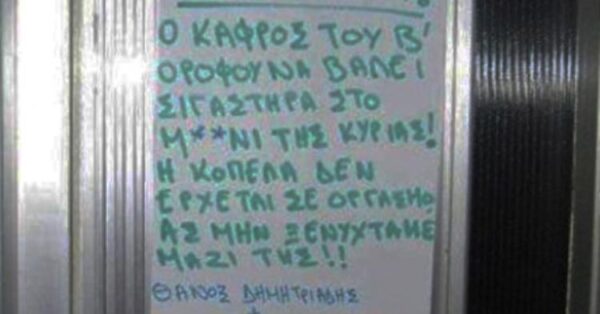 Ο ΚΑΦΡΟΣ ΤΟΥ Β'
ΟΡΟΦΟΥ ΝΑ ΒΑΛΕΙ
ΣΙΓΑΣΤΗΡΑ ΣΤΟ
Μ**ΝΙ ΤΗΣ ΚΥΡΙΑΣ!
Η ΚΟΠΕΛΑ ΔΕΝ
ΕΡΧΕΤΑΙ ΣΕ ΟΡΓΑΣΜΟ,
ΑΣ ΜΗΝ ΞΕΝΥΧΤΑΜΕ
ΜΑΖΙ ΤΗΣ!!
ΘΑΝΟΣ ΔΗΜΗΤΡΙΑΔΗΣ